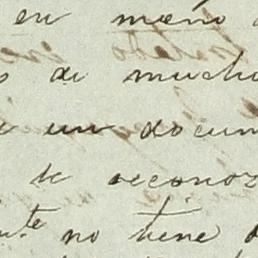 en mano
de mucho
un docum
te reconoz
nte no tiene